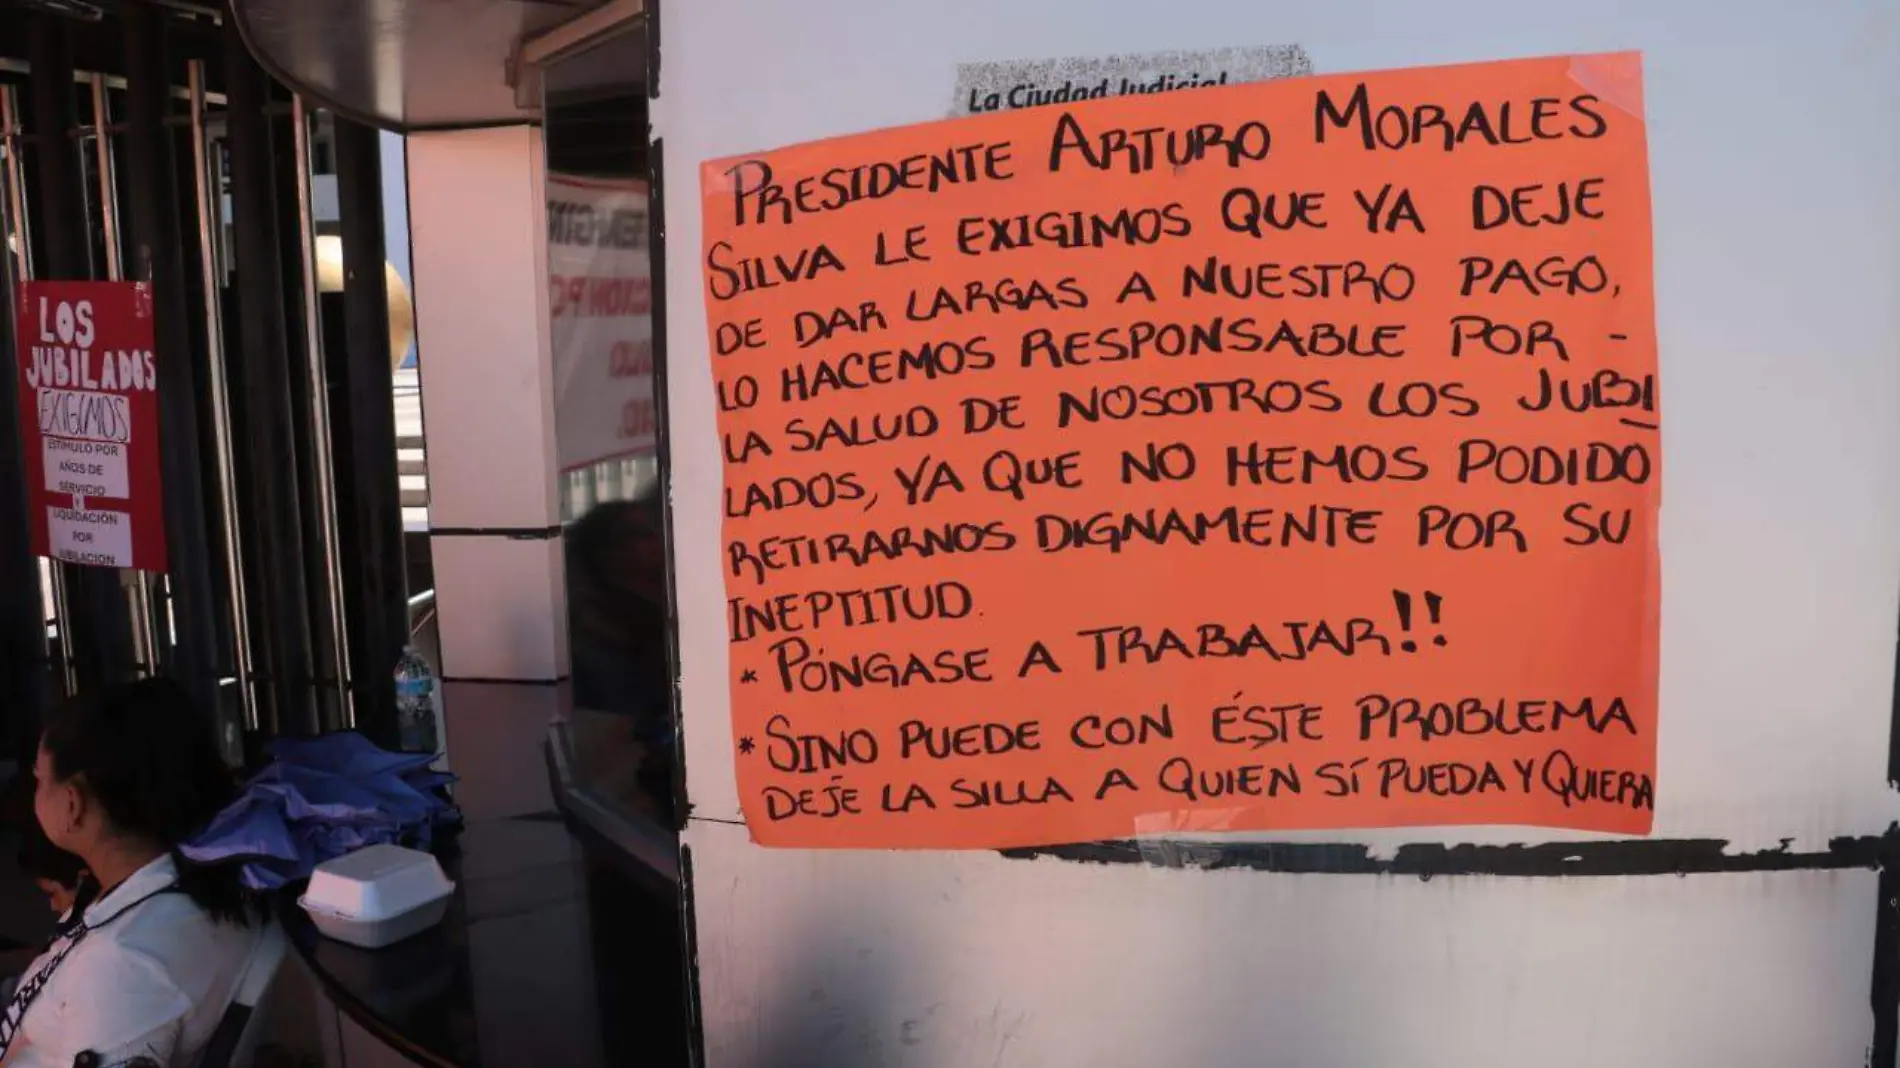 La Ciudad Judicial
PRESIDENTE ARTURO MORALES
SILVA LE EXIGIMOS QUE YA DEJE
DE DAR LARGAS A NUESTRO PAGO,
LO HACEMOS RESPONSABLE POR -
LA SALUD DE NOSOTROS LOS JUBI
LADOS, YA QUE NO HEMOS PODIDO
RETIRARNOS DIGNAMENTE POR SU
INEPTITUD.
* PÓNGASE A TRABAJAR!!
* SINO PUEDE CON ÉSTE PROBLEMA
DEJE LA SILLA A QUIEN SÍ PUEDA Y QUIERA
LOS
JUBILADOS
EXIGIMOS
ESTIMULO POR
AÑOS DE
SERVICIO
Y
LIQUIDACIÓN
POR
JUBILACION